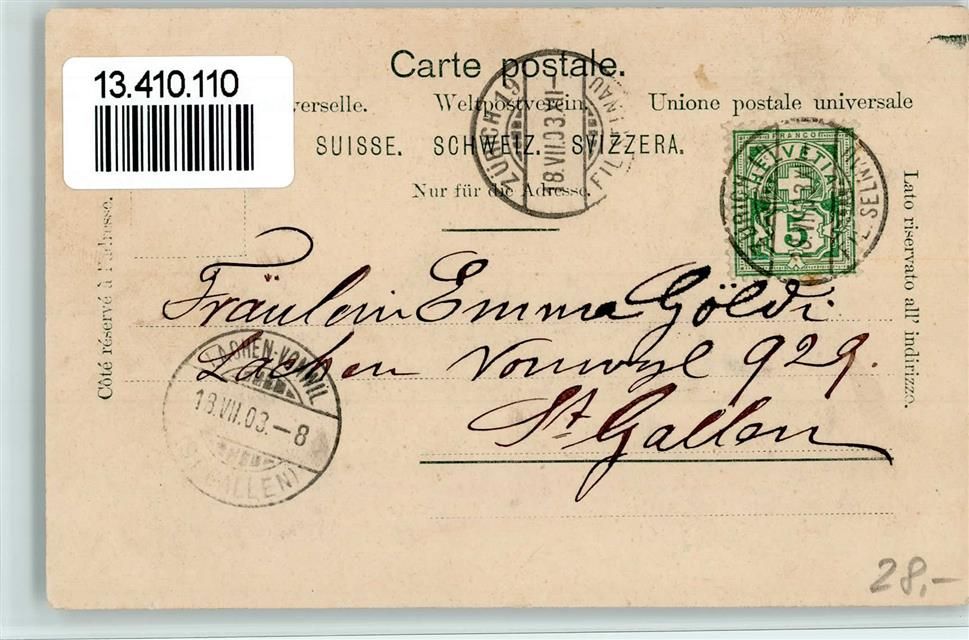 13.410.110
Carte postale.
verselle. Weltpostverein. Unione postale universale
SUISSE. SCHWEIZ. SVIZZERA.
Nur für die Adresse.
Côté réservé à l'adresse.
Lato riservato all' indirizzo.
ZÜRICH 19
18.VII.03.XI-
FRANCO
HELVETIA
5
Fräulein Emma Göldi
Lachen Vonwyl 929.
St. Gallen
LACHEN-VONWIL
18.VII.03.-8
(ST. GALLEN)
28,-